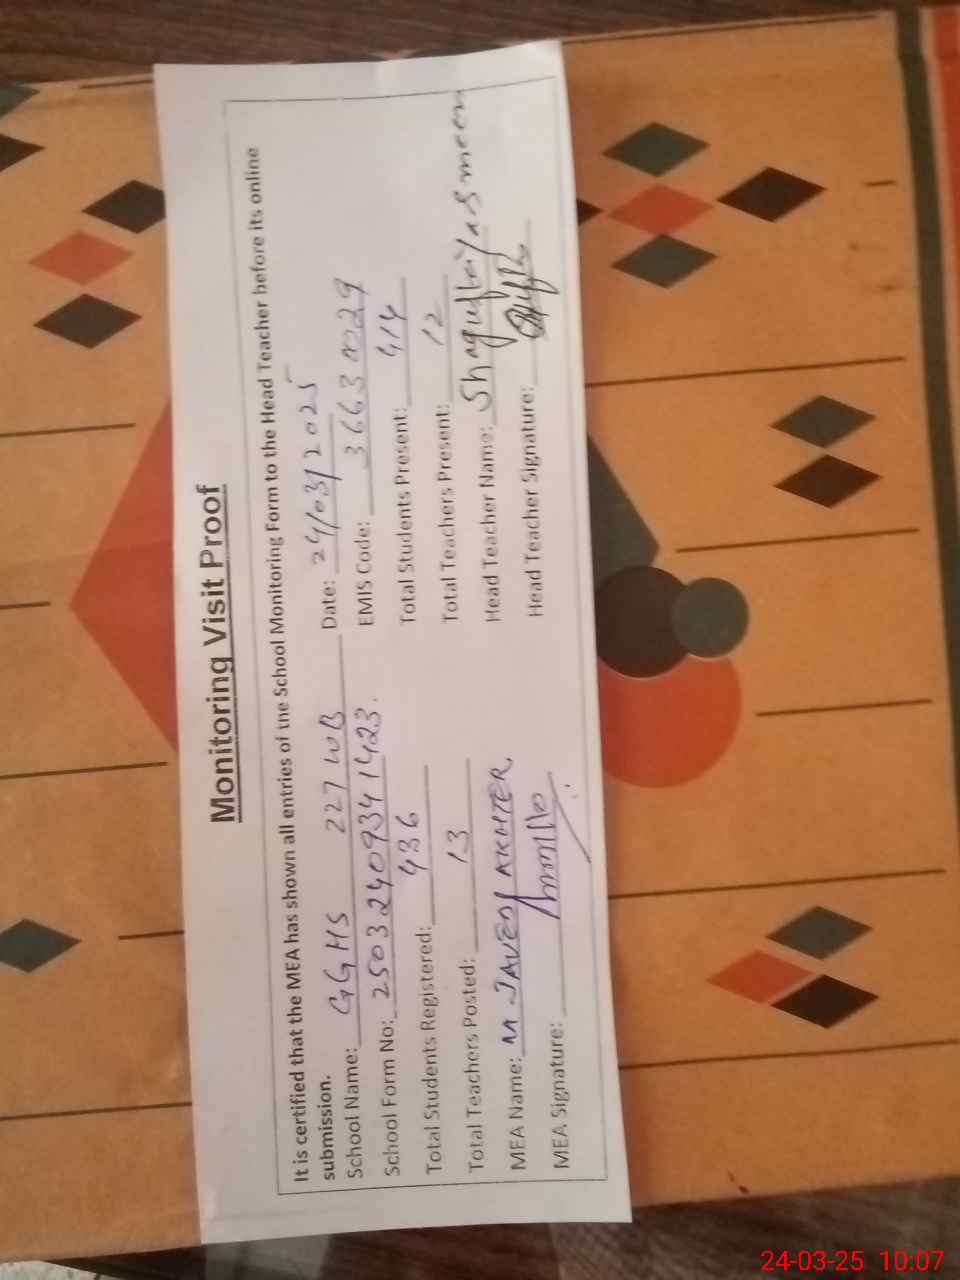 Monitoring Visit Proof
It is certified that the MEA has shown all entries of the School Monitoring Form to the Head Teacher before its online
submission.
School Name: GGHS 227 WB Date: 24/03/2025
School Form No: 25032409341423. EMIS Code: 36630029
Total Students Registered: 436 Total Students Present: 414
Total Teachers Posted: 13 Total Teachers Present: 12
MEA Name: M JAVED AKHTER Head Teacher Name: Shagufta Yasmeen
MEA Signature: Head Teacher Signature:
24-03-25 10:07